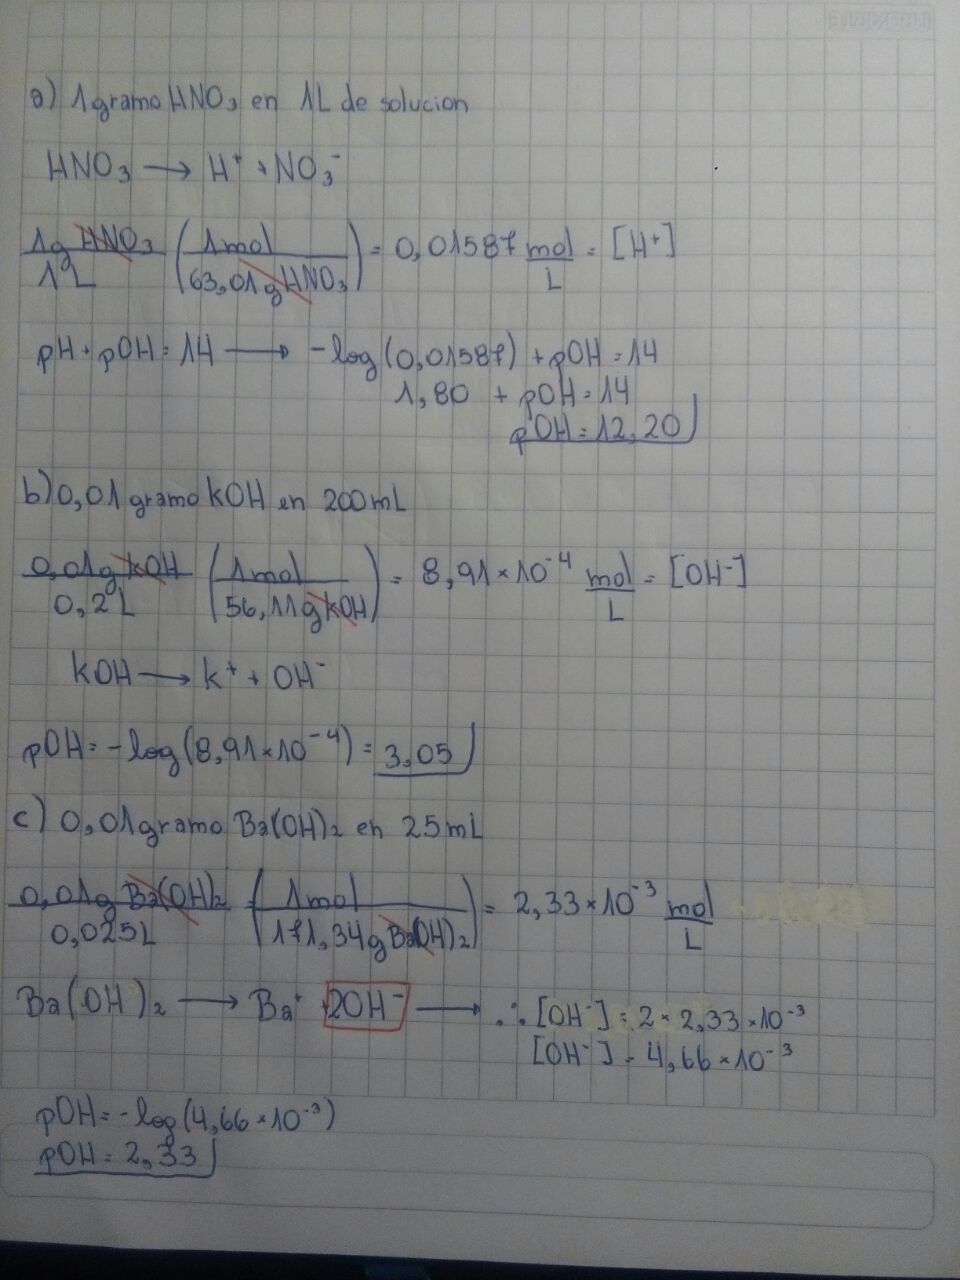 a) 1 gramo HNO₃ en 1L de solucion
HNO₃ → H⁺ + NO₃⁻
1g HNO₃ / 1L (1mol / 63,01g HNO₃) = 0,01587 mol/L = [H⁺]
pH + pOH = 14 → -log(0,01587) + pOH = 14
1,80 + pOH = 14
pOH = 12,20
b) 0,01 gramo KOH en 200mL
0,01g KOH / 0,2L (1mol / 56,11g KOH) = 8,91×10⁻⁴ mol/L = [OH⁻]
KOH → K⁺ + OH⁻
pOH = -log(8,91×10⁻⁴) = 3,05
c) 0,01 gramo Ba(OH)₂ en 25mL
0,01g Ba(OH)₂ / 0,025L (1mol / 171,34g Ba(OH)₂) = 2,33×10⁻³ mol/L
Ba(OH)₂ → Ba⁺ + 2OH⁻ → ∴ [OH⁻] = 2 × 2,33×10⁻³
[OH⁻] = 4,66×10⁻³
pOH = -log(4,66×10⁻³)
pOH = 2,33